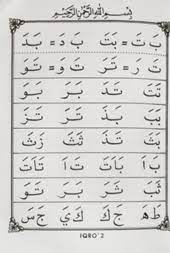 بِسْمِ اللهِ الرَّحْمٰنِ الرَّحِيْمِ
بَ تَ = بَتَ بَ دَ = بَدَ
تَ رَ = تَرَ تَ وَ = تَوَ
تَتَ تَدَ بَرَ بَوَ
بَتَ بَدَ تَرَ تَزَ
بَثَ تَذَ ثَتَ زَثَ
بَاَ بَاَتَ اَتَاَ تَاَتَ
ثَبَ ثَرَ بَرَ تَوَ
جَ كَ كَ يَ جَ سَ
IQRO' 2